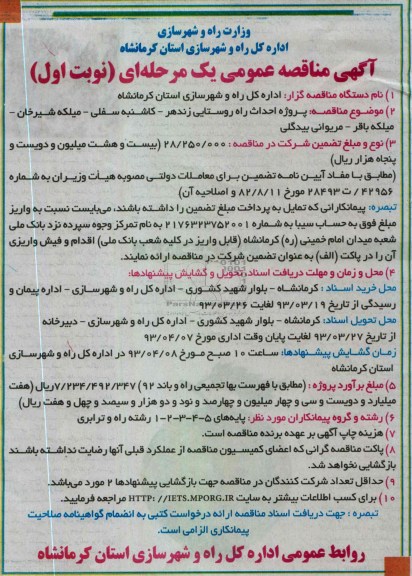 وزارت راه و شهرسازی
اداره کل راه و شهرسازی استان کرمانشاه
آگهی مناقصه عمومی یک مرحله‌ای (نوبت اول)
۱) نام دستگاه مناقصه گزار: اداره کل راه و شهرسازی استان کرمانشاه
۲) موضوع مناقصه: پروژه احداث راه روستایی زندهر - کاشنبه سفلی - میلکه شیرخان -
میلکه باقر - مریوانی بیدگلی
۳) نوع و مبلغ تضمین شرکت در مناقصه : ۲۸/۲۵۰/۰۰۰ (بیست و هشت میلیون و دویست و
پنجاه هزار ریال)
(مطابق با مفاد آیین نامه تضمین برای معاملات دولتی مصوبه هیأت وزیران به شماره
۴۲۹۵۶ / ت ۲۸۴۹۳ مورخ ۸۲/۸/۱۱ و اصلاحیه آن)
تبصره: پیمانکارانی که تمایل به پرداخت مبلغ تضمین را داشته باشند، می‌بایست نسبت به واریز
مبلغ فوق به حساب سیبا به شماره ۲۱۷۶۳۲۳۷۵۲۰۰۱ به نام تمرکز وجوه سپرده نزد بانک ملی
شعبه میدان امام خمینی (ره) کرمانشاه (قابل واریز در کلیه شعب بانک ملی) اقدام و فیش واریزی
آن را در پاکت (الف) به عنوان تضمین شرکت در مناقصه ارائه نمایند.
۴) محل و زمان و مهلت دریافت اسناد، تحویل و گشایش پیشنهادها:
محل خرید اسناد : کرمانشاه - بلوار شهید کشوری - اداره کل راه و شهرسازی - اداره پیمان و
رسیدگی از تاریخ ۹۳/۰۳/۱۹ لغایت ۹۳/۰۳/۲۶
محل تحویل اسناد: کرمانشاه - بلوار شهید کشوری - اداره کل راه و شهرسازی - دبیرخانه
از تاریخ ۹۳/۰۳/۲۷ لغایت پایان وقت اداری مورخ ۹۳/۰۴/۰۷
زمان گشایش پیشنهادها: ساعت ۱۰ صبح مورخ ۹۳/۰۴/۰۸ در اداره کل راه و شهرسازی
استان کرمانشاه
۵) مبلغ برآورد پروژه : (مطابق با فهرست بها تجمیعی راه و باند ۹۲) ۷/۲۳۴/۴۹۲/۳۴۷ریال (هفت
میلیارد و دویست و سی و چهار میلیون و چهارصد و نود و دو هزار و سیصد و چهل و هفت ریال)
۶) رشته و گروه پیمانکاران مورد نظر: پایه‌های ۵-۴-۳-۲-۱ رشته راه و ترابری
۷) هزینه چاپ آگهی بر عهده برنده مناقصه است.
۸) پاکت مناقصه گرانی که اعضای کمیسیون مناقصه از عملکرد قبلی آنها رضایت نداشته باشند
بازگشایی نخواهد شد.
۹) حداقل تعداد شرکت کنندگان در مناقصه جهت بازگشایی پیشنهادها ۲ مورد می‌باشد.
۱۰) برای کسب اطلاعات بیشتر به سایت HTTP: //IETS.MPORG.IR مراجعه فرمایید.
تبصره : جهت دریافت اسناد مناقصه ارائه درخواست کتبی به انضمام گواهینامه صلاحیت
پیمانکاری الزامی است.
روابط عمومی اداره کل راه و شهرسازی استان کرمانشاه